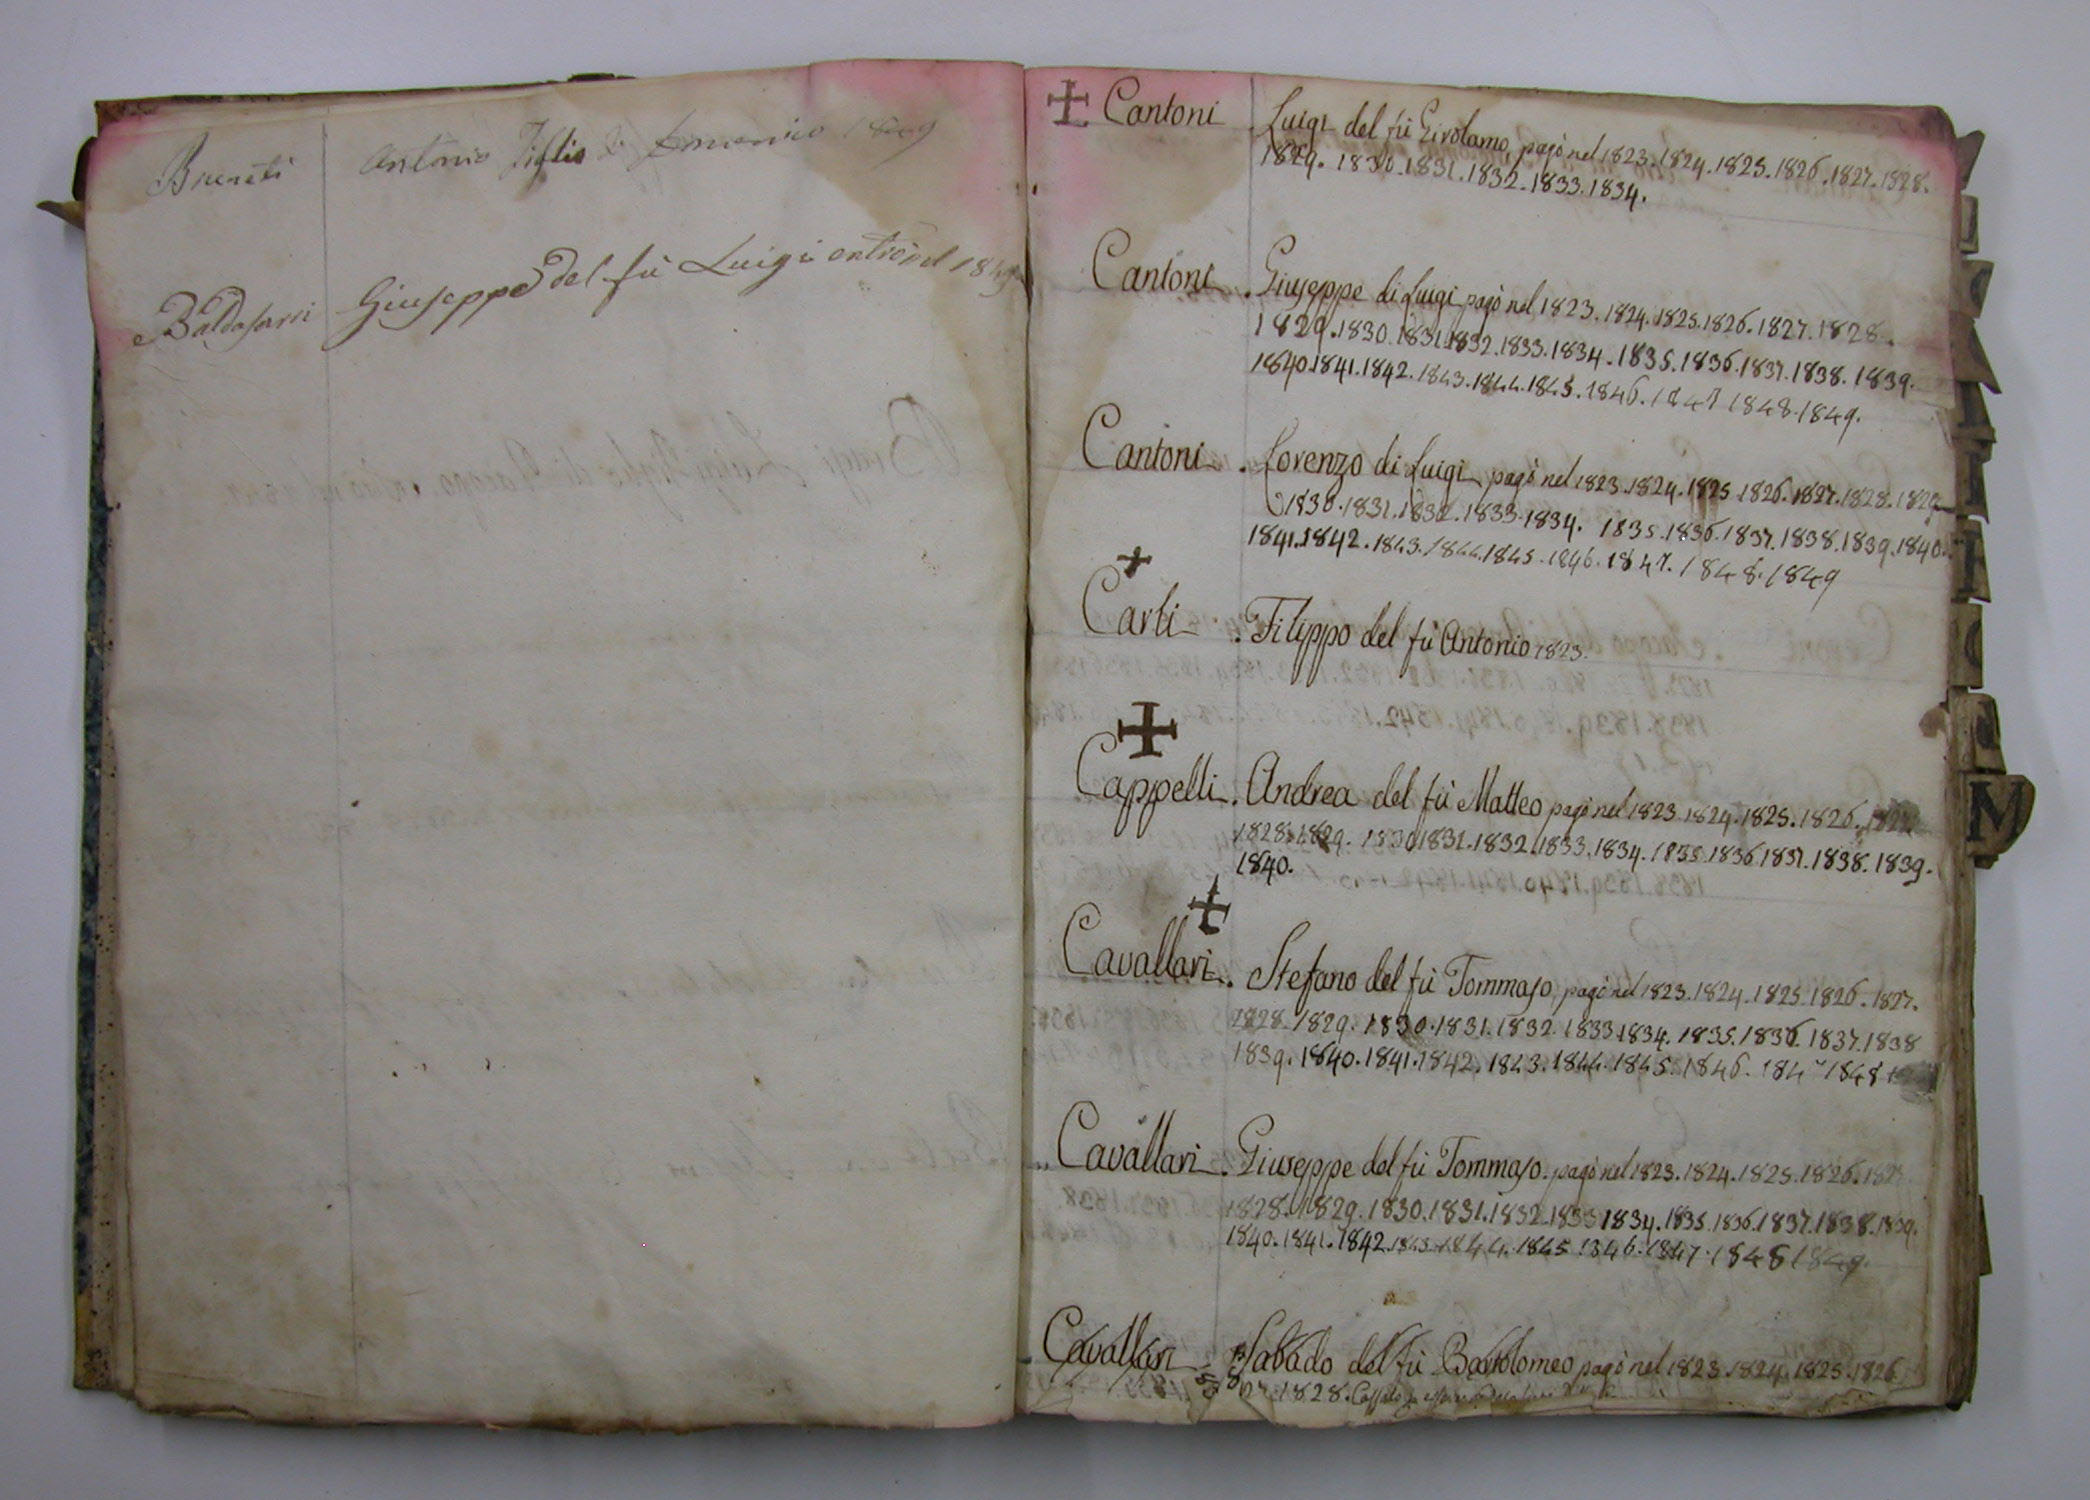 Bruneti Antonio Figlio di Domenico 1849
Baldasarri Giuseppe del fù Luigi entrò nel 1849
Cantoni Luigi del fù Girolamo, pagò nel 1823.1824.1825.1826.1827.1828.
1829.1830.1831.1832.1833.1834.
Cantoni. Giuseppe di Luigi pagò nel 1823.1824.1825.1826.1827.1828.
1829.1830.1831.1832.1833.1834.1835.1836.1837.1838.1839.
1840.1841.1842.1843.1844.1845.1846.1847 1848.1849.
Cantoni. Lorenzo di Luigi pagò nel 1823.1824.1825.1826.1827.1828.1829
1830.1831.1832.1833.1834. 1835.1836.1837.1838.1839.1840.
1841.1842.1843.1844.1845.1846.1847.1848.1849
Carli. Filippo del fù Antonio 1823.
Cappelli. Andrea del fù Matteo pagò nel 1823.1824.1825.1826.1827
1828.1829.1830.1831.1832.1833.1834.1835.1836.1837.1838.1839.
1840.
M
Cavallari. Stefano del fù Tommaso pagò nel 1823.1824.1825.1826.1827.
1828.1829.1830.1831.1832.1833.1834.1835.1836.1837.1838
1839.1840.1841.1842.1843.1844.1845.1846.1847 1848
Cavallari. Giuseppe del fù Tommaso. pagò nel 1823.1824.1825.1826.1827
1828.1829.1830.1831.1832.1833 1834.1835.1836.1837.1838.1839.
1840.1841.1842.1843.1844.1845.1846.1847.1848 1849.
Cavallari Sabado del fù Bartolomeo pagò nel 1823.1824.1825.1826
1828. Cassato